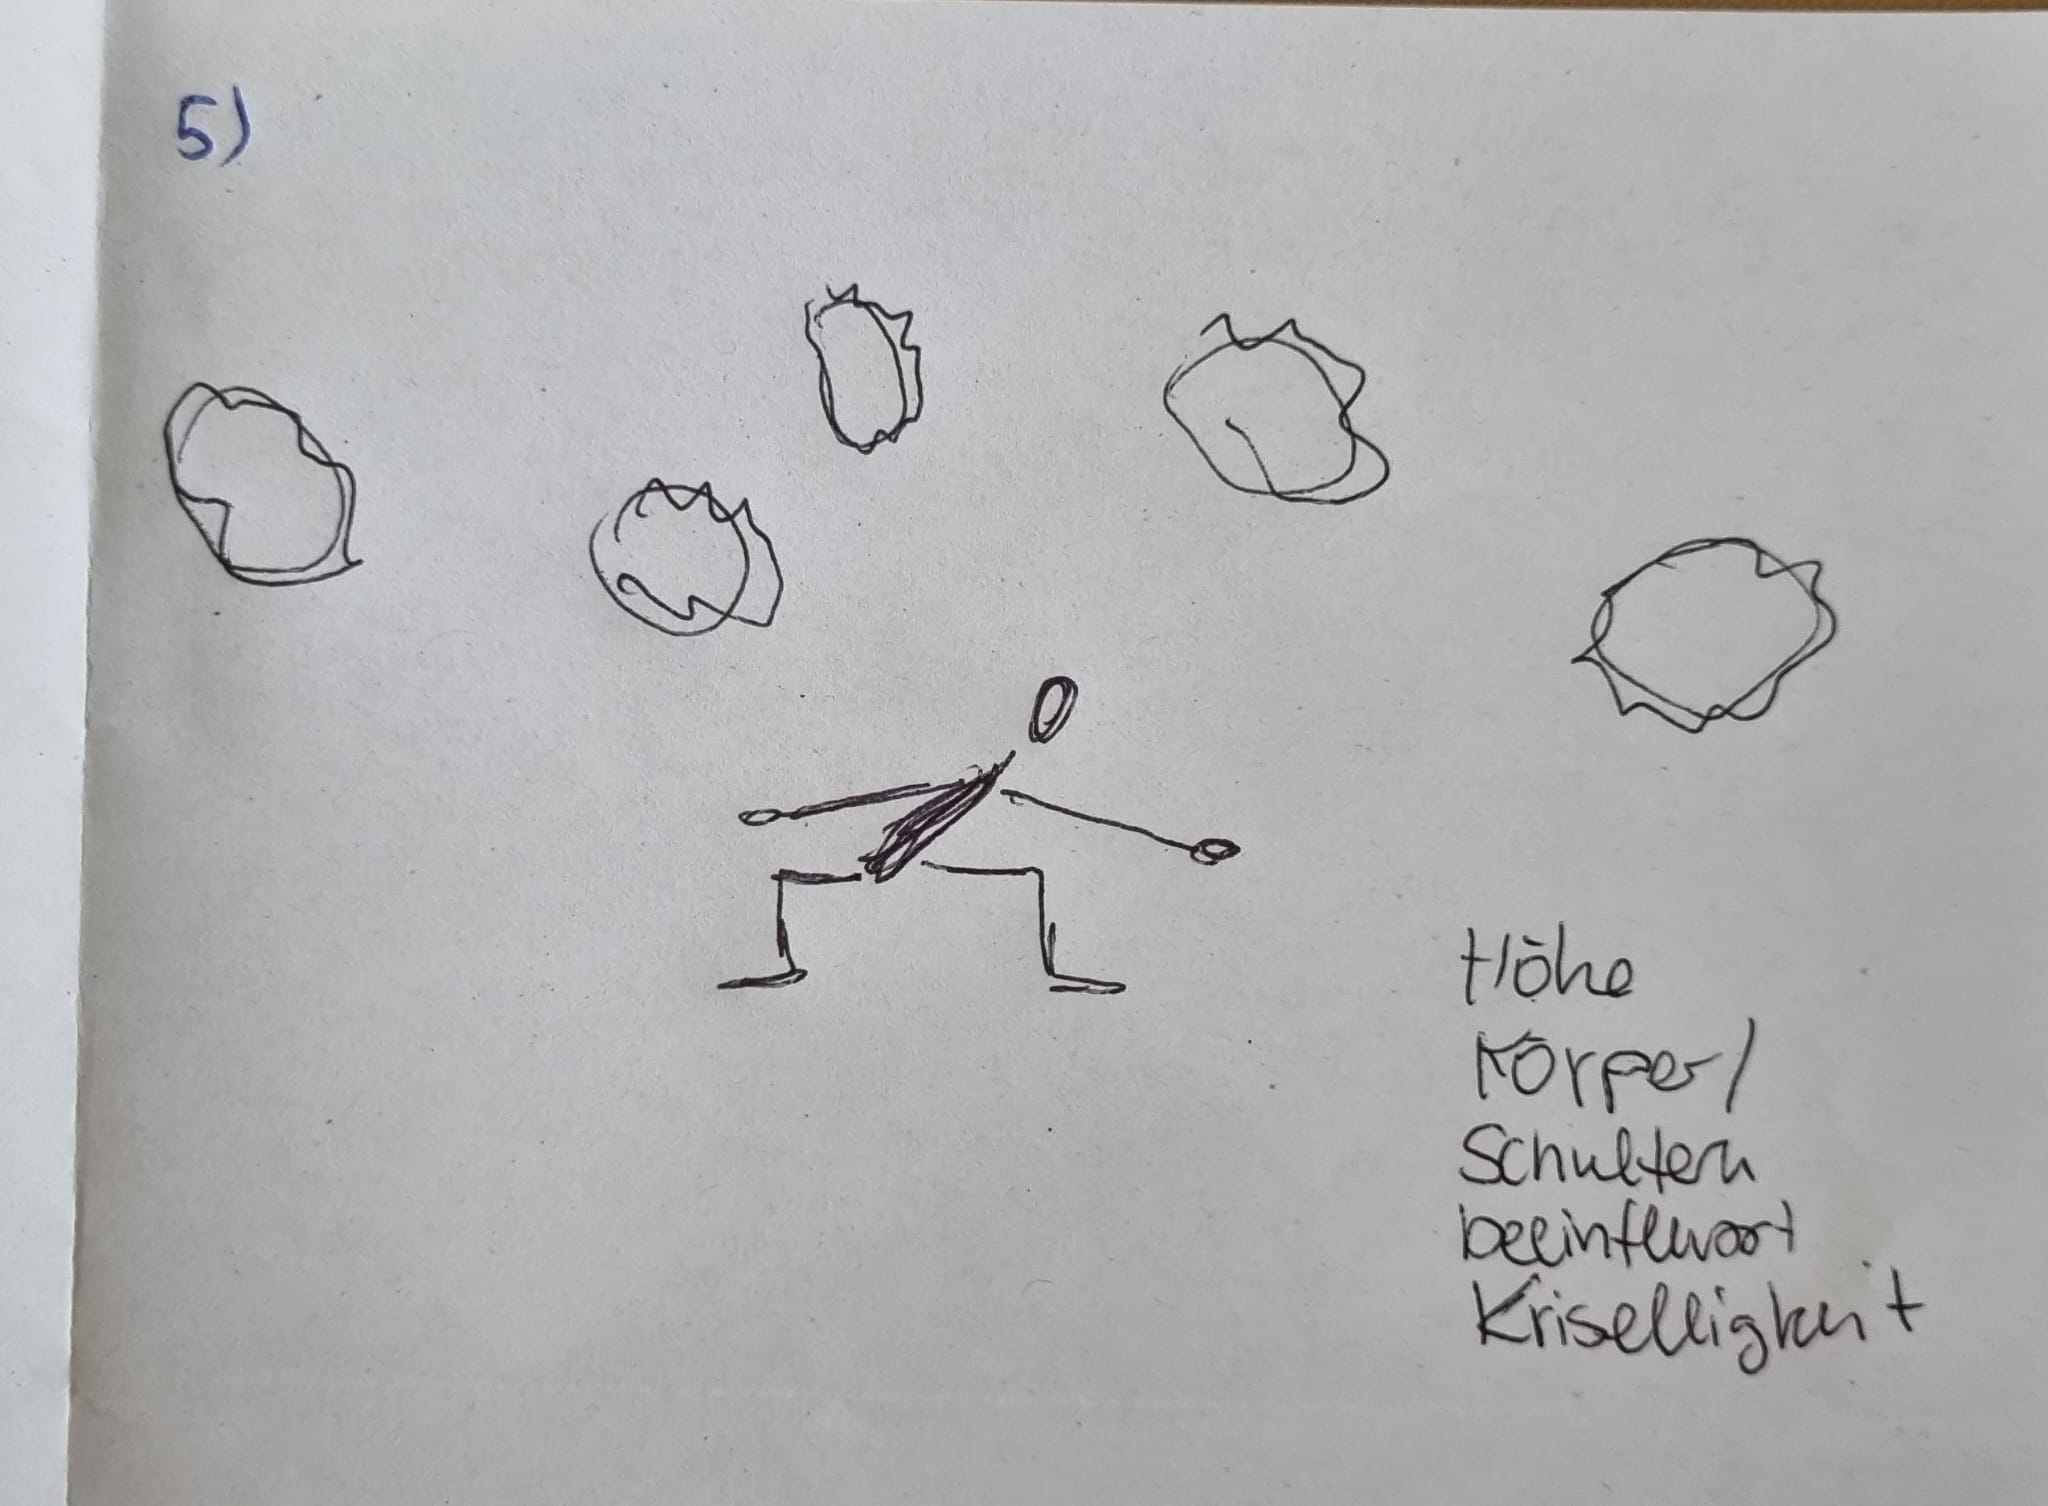 5)
Höhe
Körper/
Schultern
beeinflusst
Kriselligkeit